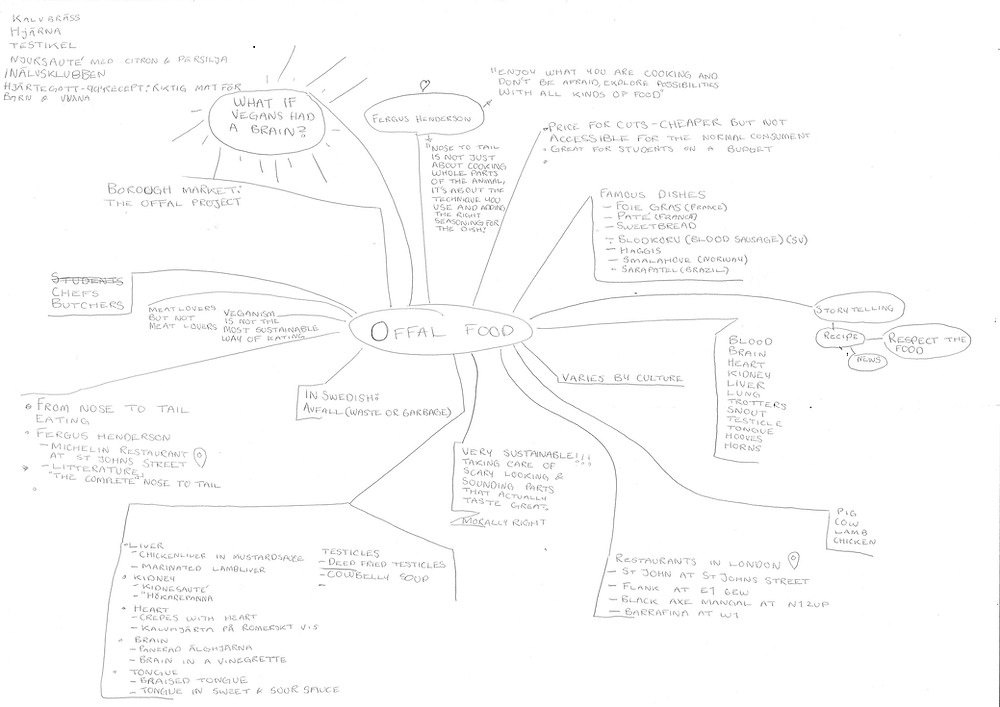 KALVBRÄSS
HJÄRNA
TESTIKEL
NJURSAUTÉ MED CITRON & PERSILJA
INÄLVSKLUBBEN
HJÄRTEGOTT - 94 RECEPT: RIKTIG MAT FÖR
BARN & VUXNA
WHAT IF
VEGANS HAD
A BRAIN?
FERGUS HENDERSON
"ENJOY WHAT YOU ARE COOKING AND
DON'T BE AFRAID, EXPLORE POSSIBILITIES
WITH ALL KINDS OF FOOD"
"NOSE TO TAIL
IS NOT JUST
ABOUT COOKING
WHOLE PARTS
OF THE ANIMAL,
IT'S ABOUT THE
TECHNIQUE YOU
USE AND ADDING
THE RIGHT
SEASONING FOR
THE DISH."
PRICE FOR CUTS - CHEAPER BUT NOT
ACCESSIBLE FOR THE NORMAL CONSUMENT
GREAT FOR STUDENTS ON A BUDGET
BOROUGH MARKET:
THE OFFAL PROJECT
FAMOUS DISHES
- FOIE GRAS (FRANCE)
- PATÉ (FRANCE)
- SWEETBREAD
- BLODKORV (BLOOD SAUSAGE) (SV)
- HAGGIS
- SMALAHOVE (NORWAY)
- SARAPATEL (BRAZIL)
STUDENTS
CHEFS
BUTCHERS
MEAT LOVERS
BUT NOT
MEAT LOVERS
VEGANISM
IS NOT THE
MOST SUSTAINABLE
WAY OF EATING
OFFAL FOOD
STORYTELLING
RECIPE
RESPECT THE
FOOD
NEWS
BLOOD
BRAIN
HEART
KIDNEY
LIVER
LUNG
TROTTERS
SNOUT
TESTICLE
TONGUE
HOOVES
HORNS
VARIES BY CULTURE
IN SWEDISH:
AVFALL (WASTE OR GARBAGE)
FROM NOSE TO TAIL
EATING
FERGUS HENDERSON
- MICHELIN RESTAURANT
AT ST JOHNS STREET
- LITTERATURE:
"THE COMPLETE NOSE TO TAIL
VERY SUSTAINABLE!!!
TAKING CARE OF
SCARY LOOKING &
SOUNDING PARTS
THAT ACTUALLY
TASTE GREAT.
MORALLY RIGHT
PIG
COW
LAMB
CHICKEN
LIVER
- CHICKENLIVER IN MUSTARDSAUCE
- MARINATED LAMBLIVER
KIDNEY
- KIDNESAUTÉ
- "HÖKARPANNA
HEART
- CREPES WITH HEART
- KALVHJÄRTA PÅ ROMERSKT VIS
BRAIN
- PANERAD ÄLGHJÄRNA
- BRAIN IN A VINEGRETTE
TONGUE
- BRAISED TONGUE
- TONGUE IN SWEET & SOUR SAUCE
TESTICLES
- DEEP FRIED TESTICLES
- COWBELLY SOUP
RESTAURANTS IN LONDON
- ST JOHN AT ST JOHNS STREET
- FLANK AT E1 6EW
- BLACK AXE MANGAL AT N12UP
- BARRAFINA AT W1